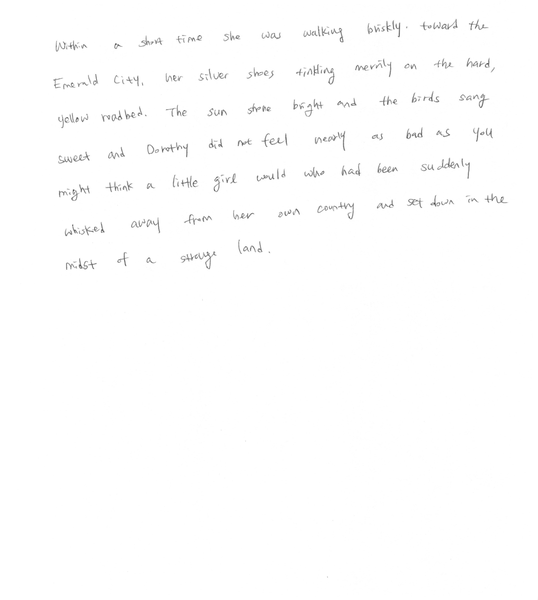 Within a short time she was walking briskly. toward the
Emerald City, her silver shoes tinkling merrily on the hard,
yellow roadbed. The sun shone bright and the birds sang
sweet and Dorothy did not feel nearly as bad as you
might think a little girl would who had been suddenly
whisked away from her own country and set down in the
midst of a strange land.